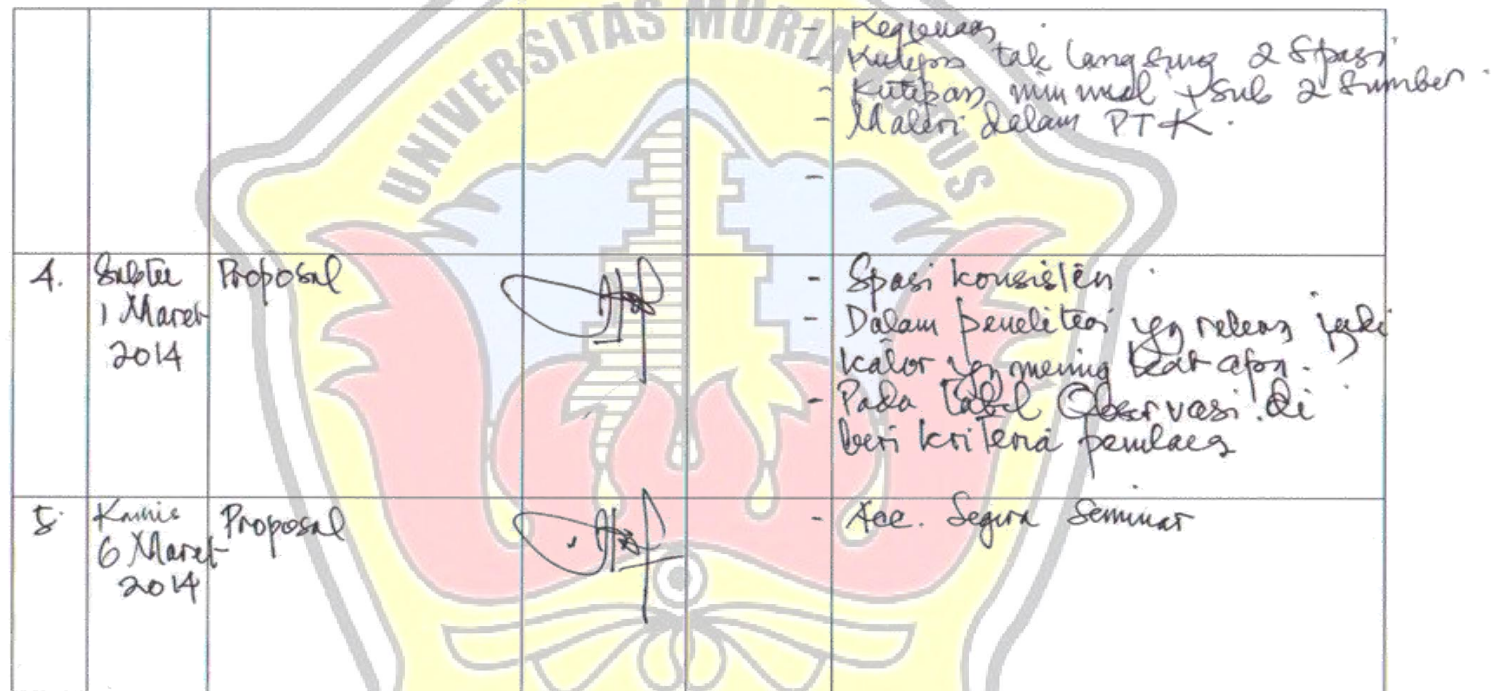 UNIVERSITAS MURIA KUDUS
- Kegunaan
- Kutipan tak langsung 2 Spasi
- Kutipan minimal + sub 2 Sumber.
- Materi dalam PTK.
-
4. Sabtu
1 Maret
2014
Proposal
- Spasi konsisten
- Dalam penelitian yg relevan jadi
yg
- Pada tabel Observasi di
beri kriteria
5. Kamis
6 Maret
2014
Proposal
- Acc. Segera Seminar